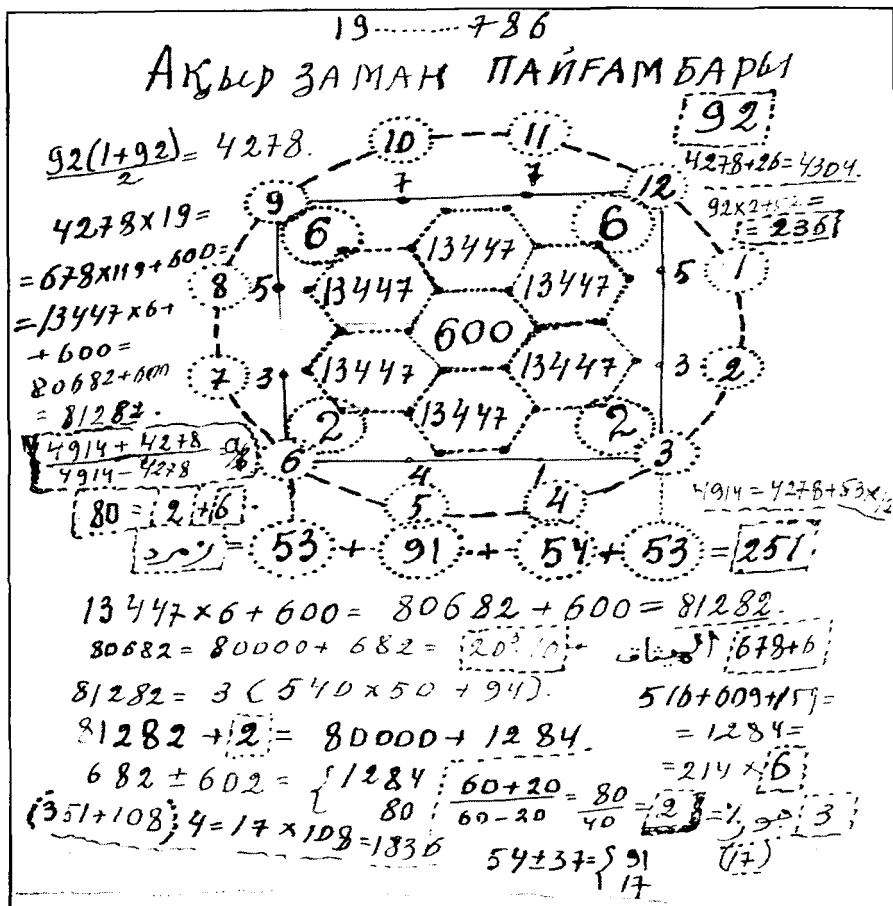 19.........786
АҚЫР ЗАМАН ПАЙҒАМБАРЫ
92
92(1+92)/2 = 4278.
4278+26=4304.
= 236
4278×19=
=678×119+600=
=13447×6+
+600=
80682+600
= 81282.
4914+4278
4914-4278
80 = 2 + 6
10 11 12 1 2 3 4 5 6 7 8 9
7 7
6 6
5 5
3 3
2 2
4 1
13447
13447 13447
600
13447 13447
13447
4914=4278+53×12
زمرد = 53 + 91 + 54 + 53 = 251
13447×6+600= 80682+600=81282.
80682= 80000+ 682= الميثاق 678+6
81282= 3 (540×50+94).
516+609+159=
81282+2= 80000+1284.
=1284=
682 ± 602 = { 1284 80
=214×6
60+20/60-20 = 80/40 = 2
3
(351+108) 4=17×108=1836
54±37={ 91 17
(17)